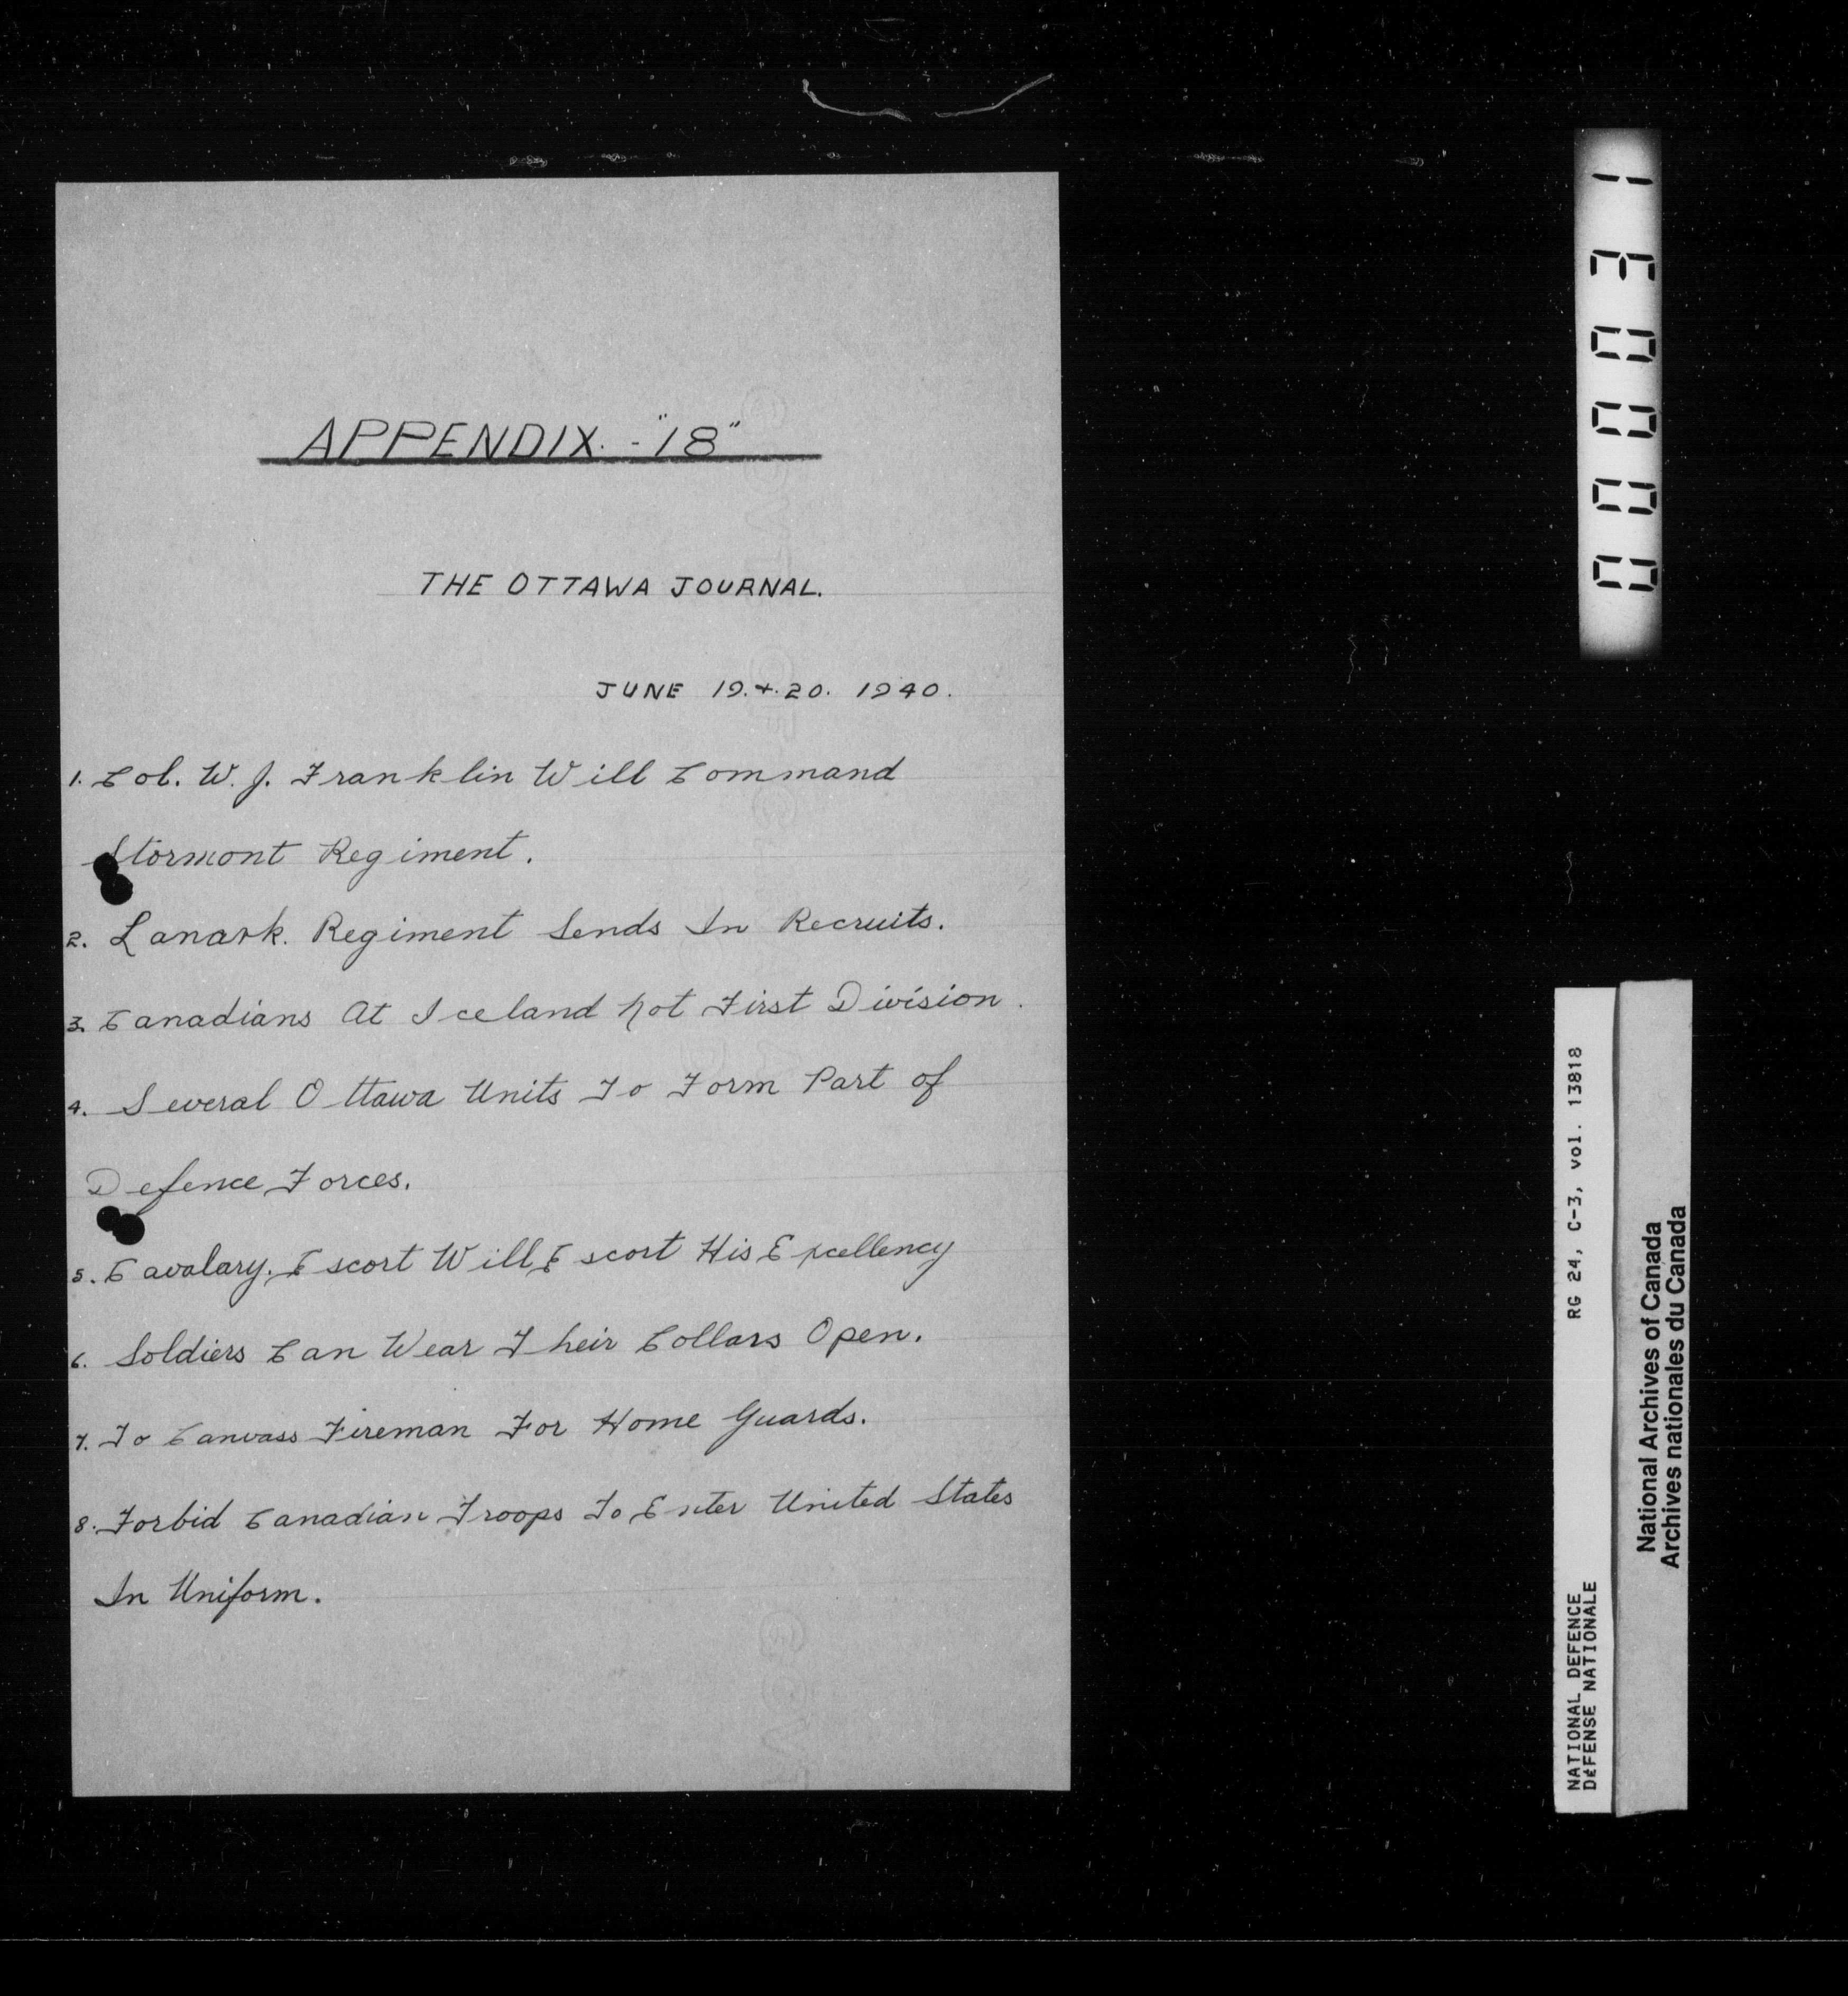 APPENDIX. - "18"
THE OTTAWA JOURNAL.
JUNE 19. + 20. 1940.
1. Col. W. J. Franklin Will Command
Stormont Regiment.
2. Lanark. Regiment Sends In Recruits.
3. Canadians At Iceland Not First Division.
4. Several Ottawa Units To Form Part of
Defence Forces.
5. Cavalary. Escort Will Escort His Excellency
6. Soldiers Can Wear Their Collars Open.
7. To Canvass Fireman For Home Guards.
8. Forbid Canadian Troops To Enter United States
In Uniform.
000031
NATIONAL DEFENCE RG 24, C-3, vol. 13818
DéFENSE NATIONALE
National Archives of Canada
Archives nationales du Canada